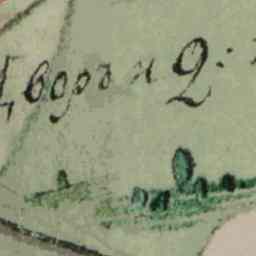 Дворъи 2: